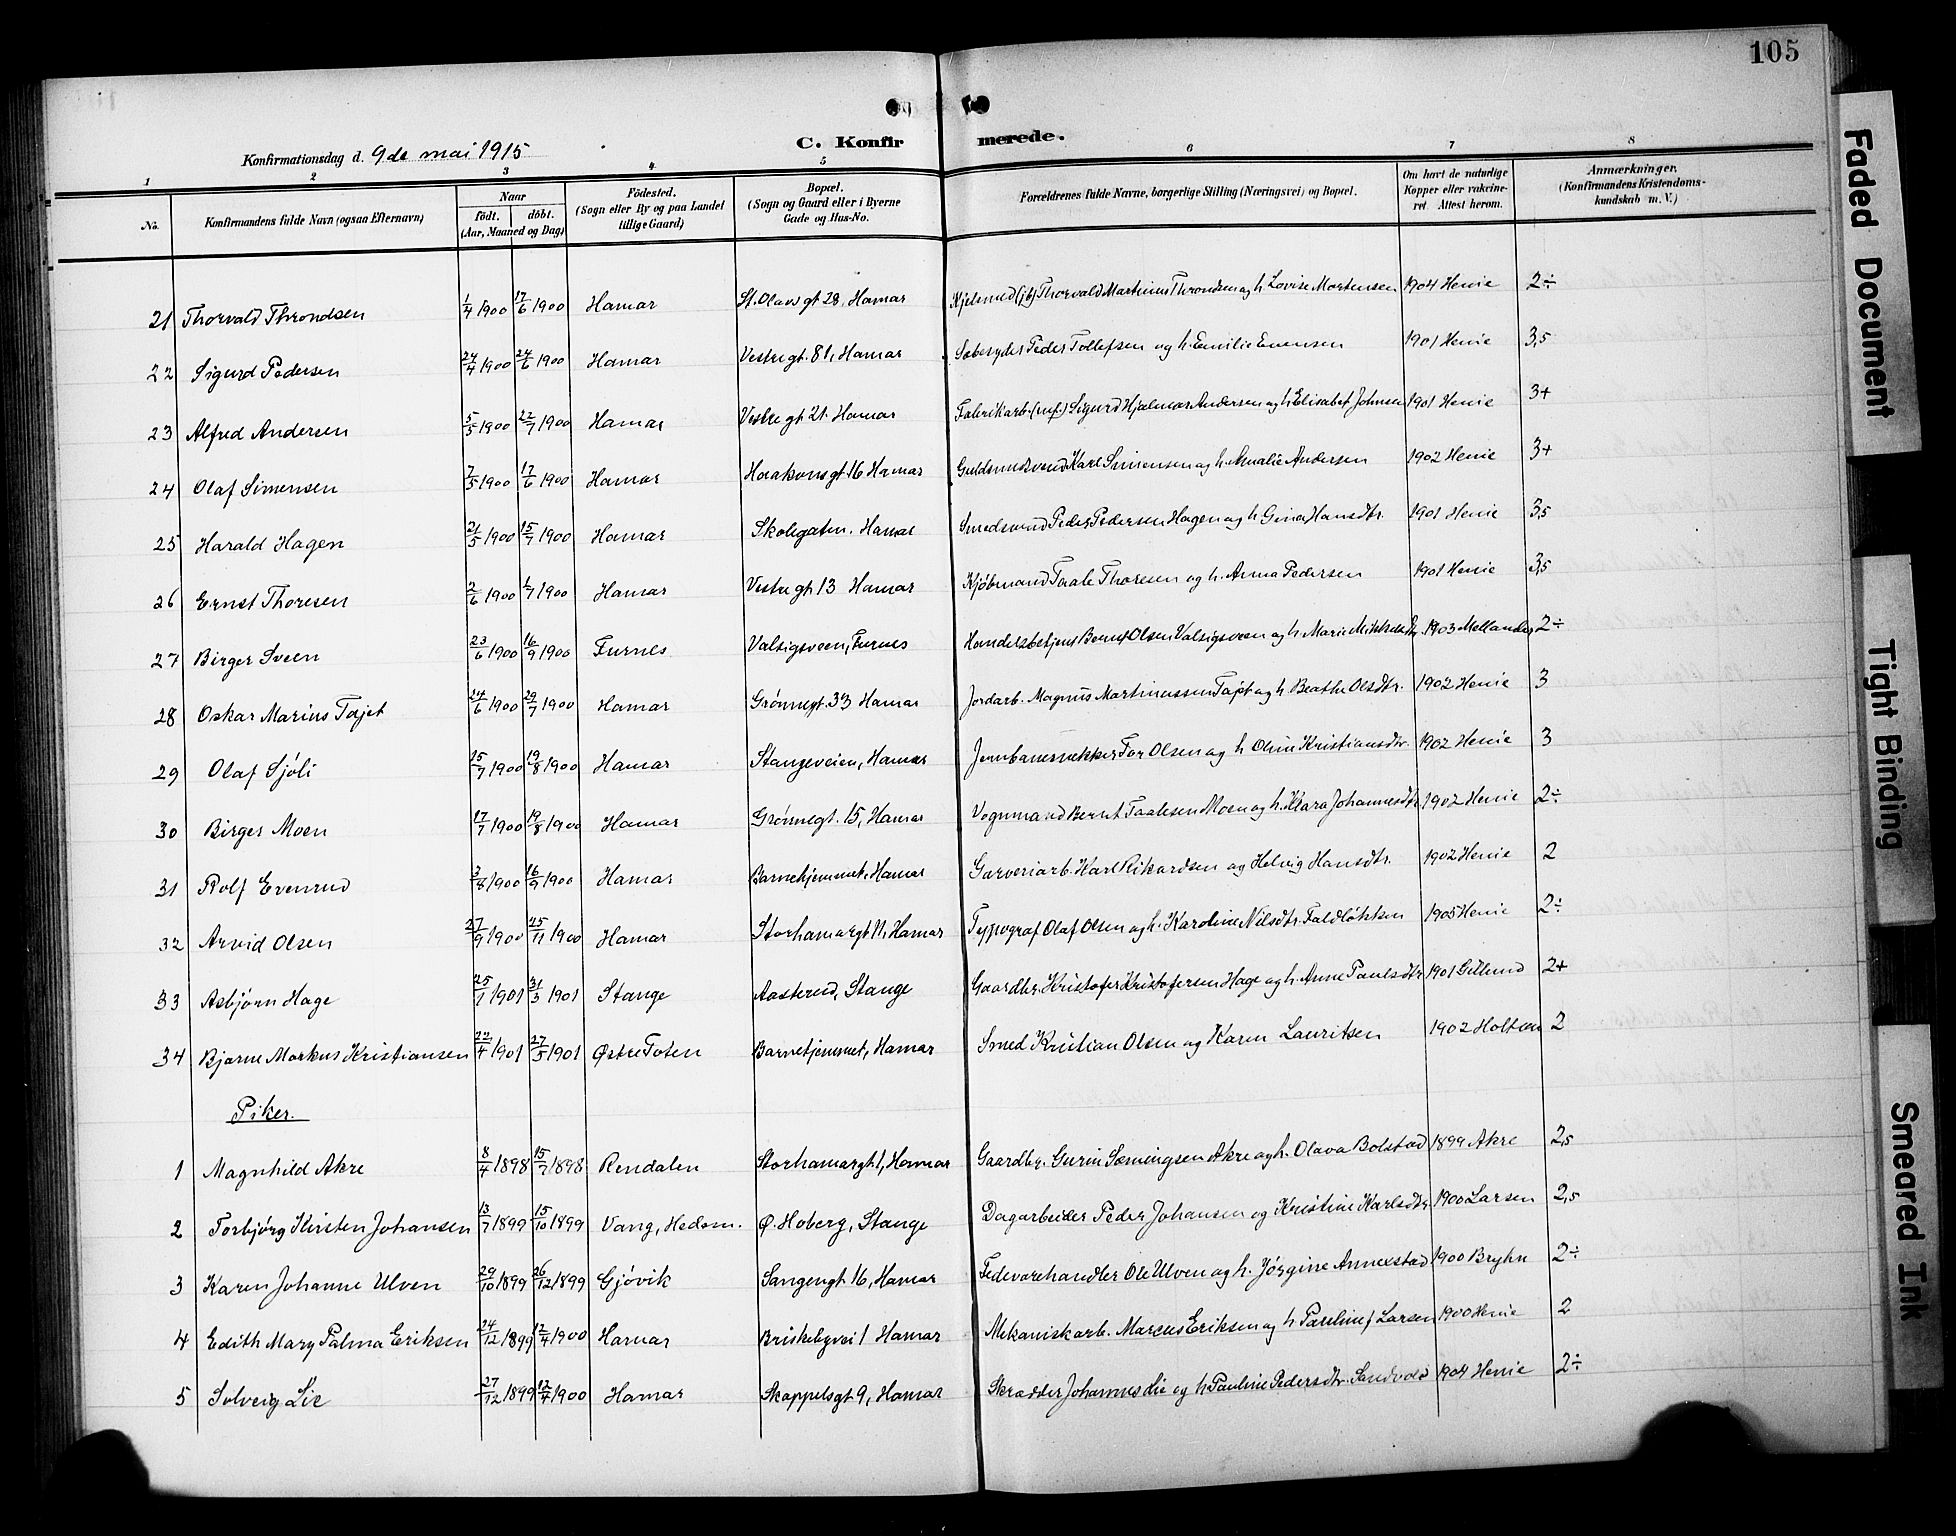 105
C. Konfirmerede.
Konfirmationsdag d. 9de mai 1915
1 2 3 4 5 6 7 8
No. Konfirmandens fulde Navn (ogsaa Efternavn) Naar født. døbt. (Aar, Maaned og Dag) Fødested. (Sogn eller By og paa Landet tillige Gaard) Bopæl. (Sogn og Gaard eller i Byerne Gade og Hus-No. Forældrenes fulde Navne, borgerlige Stilling (Næringsvei) og Bopæl. Om havt de naturlige Kopper eller vakcineret Attest herom. Anmærkninger. (Konfirmandens Kristendomskundskab m. V.)
21 Thorvald Throndsen 1/4 1900 17/6 1900 Hamar St. Olavs gt 28, Hamar Thorvald Martinius Throndsen og h. Lovise Mortensen 1904 Henie 2÷
22 Sigurd Pedersen 24/4 1900 24/6 1900 Hamar Vestregt. 81, Hamar Peder Tollefsen og h. Emilie Evensen 1901 Henie 3,5
23 Alfred Andersen 5/5 1900 22/7 1900 Hamar Vestregt 21. Hamar Fabrikarb. Sigurd Hjalmar Andersen og h. Elisabet Johnsen 1901 Henie 3+
24 Olaf Simensen 7/5 1900 17/6 1900 Hamar Haakonsgt 16 Hamar Guldsmedsvend Karl Simensen og h. Amalie Andersen 1902 Henie 3+
25 Harald Hagen 21/5 1900 15/7 1900 Hamar Skolegaten. Hamar Smedsvend Peder Pedersen Hagen og h. Gina Hansdtr. 1901 Henie 3,5
26 Ernst Thoresen 2/6 1900 1/7 1900 Hamar Vestregt 13 Hamar Kjøbmand Taale Thoresen og h. Anna Pedersen 1901 Henie 3,5
27 Birger Sveen 23/6 1900 16/9 1900 Furnes Valsigsveen, Furnes Handelsbetjent Bernt Olsen Valsigsveen og h. Marie 1903 2÷
28 Oskar Marius Tajet 24/6 1900 29/7 1900 Hamar Grønnegt. 33 Hamar Jordarb. Magnus Martinussen Tajet og h. Beathe Olsdtr. 1902 Henie 3
29 Olaf Sjøli 15/7 1900 19/8 1900 Hamar Stangeveien, Hamar Jernbanesnekker Tor Olsen og h. Oline Kristiansdtr. 1902 Henie 3
30 Birger Moen 17/7 1900 19/8 1900 Hamar Grønnegt. 15, Hamar Vognmand Bernt Taalesen Moen og h. Klara Johannesdtr. 1902 Henie 2÷
31 Rolf Evenrud 3/8 1900 16/9 1900 Hamar Barnehjemmet, Hamar Garveriarb. Karl Rikardsen og Helvig Hansdtr. 1902 Henie 2
32 Arvid Olsen 27/9 1900 25/11 1900 Hamar Storhamargt 11, Hamar Typograf Olaf Olsen og h. Karoline Nilsdtr. Faldløkken 1905 Henie 2÷
33 Asbjørn Hage 25/1 1901 31/3 1901 Stange Aasterud, Stange Gaardbr. Kristofer Kristofersen Hage og h. Anne Paulsdtr 1901 Gillund 2+
34 Bjarne Markus Kristiansen 22/4 1901 27/5 1901 Østre Toten Barnehjemmet, Hamar Smed Kristian Olsen og Karen Lauritsen 1902 Holtom 2
Piker.
1 Magnhild Akre 8/4 1898 15/7 1898 Rendalen Storhamargt 1, Hamar Gaardbr. Gurin Sæmingsen Akre og h. Olava Bolstad 1899 Akre 2,5
2 Torbjørg Kirsten Johansen 13/7 1899 15/10 1899 Vang, Hedem. Ø. Hoberg, Stange Dagarbeider Peder Johansen og Kristine Karlsdtr. 1900 Larsen 2,5
3 Karen Johanne Ulven 29/10 1899 26/12 1899 Gjøvik Sangengt 16, Hamar Fedevarehandler Ole Ulven og h. Jørgine Annexstad 1900 Bryhn 2÷
4 Edith Mary Palma Eriksen 24/12 1899 12/4 1900 Hamar Briskebyvei 1 Hamar Mekaniskarb. Marcus Eriksen og h. Pauline f Larsen 1900 Henie 2
5 Solveig Lie 27/12 1899 12/4 1900 Hamar Skappelsgt 9, Hamar Skrædder Johannes Lie og h. Pauline Pedersdtr. Sandvold 1904 Henie 2÷
Faded Document
Tight Binding
Smeared Ink